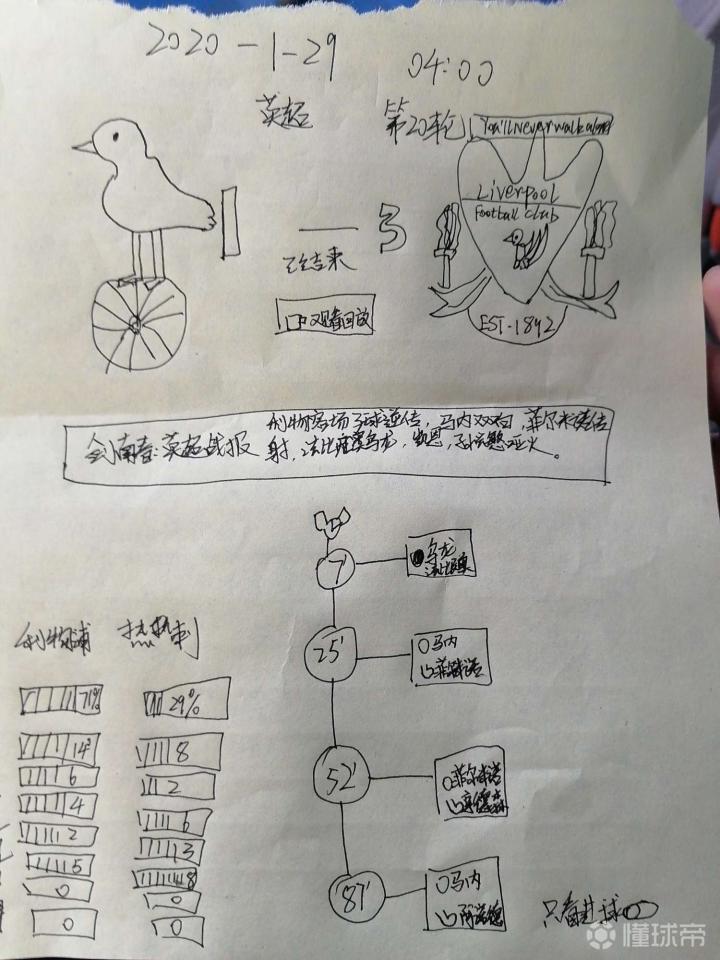 2020-1-29
04:00
英超
第20轮
You'll Never walk alone
Liverpool
Football club
EST-1892
1 — 3
已结束
观看回放
剑南春:英超战报
利物浦客场3球逆传,马内双响,菲尔米诺传
射,法比尼奥乌龙,凯恩,孙兴慜哑火。
7'
乌龙
25'
马内
菲尔米诺
52'
菲尔米诺
亨德森
87'
马内
阿诺德
只看进球
利物浦 热刺
71% 29%
14 8
6 2
4 6
2 13
5 8
0 0
0 0
懂球帝